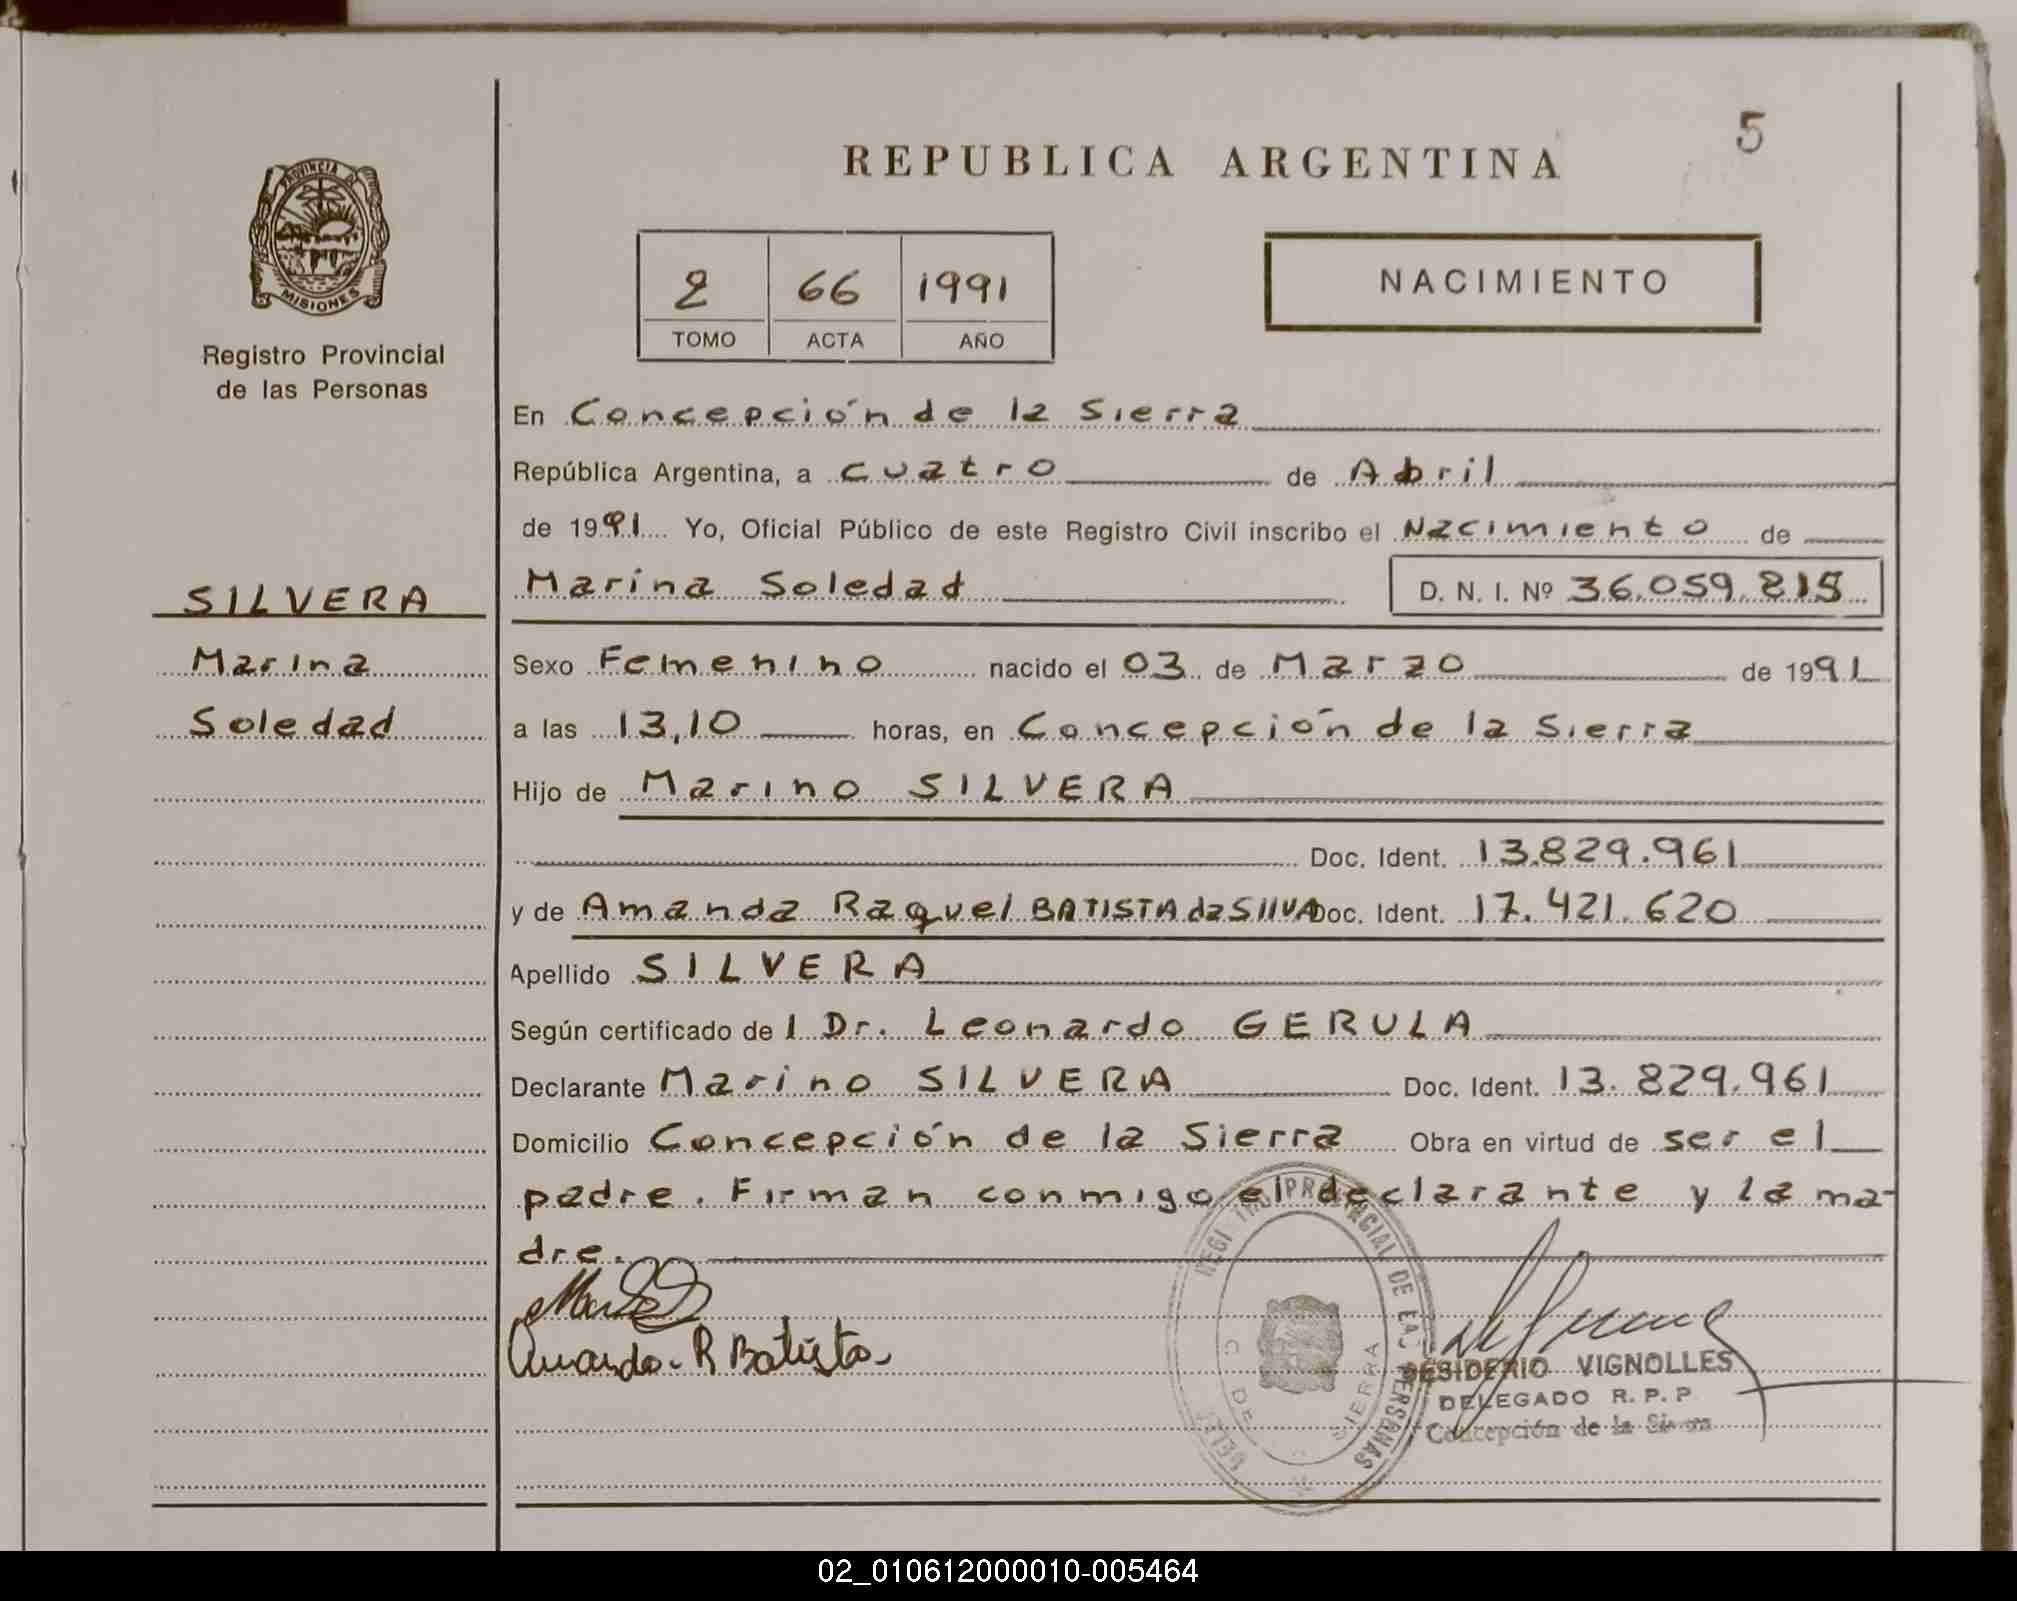 5
REPUBLICA ARGENTINA
PROVINCIA D
MISIONES
Registro Provincial
de las Personas
2 66 1991
TOMO ACTA AÑO
NACIMIENTO
En Concepción de la Sierra
República Argentina, a cuatro de Abril
de 1991 Yo, Oficial Público de este Registro Civil inscribo el Nacimiento de
SILVERA
Marina Soledad D. N. I. Nº 36.059.815
Marina
Sexo Femenino nacido el 03 de Marzo de 1991
Soledad
a las 13,10 horas, en Concepción de la Sierra
Hijo de Marino SILVERA
Doc. Ident. 13.829.961
y de Amanda Raquel BATISTA da SIlVA Doc. Ident. 17.421.620
Apellido SILVERA
Según certificado de l Dr. Leonardo GERULA
Declarante Marino SILVERA Doc. Ident. 13.829.961
Domicilio Concepción de la Sierra Obra en virtud de ser el
padre. Firman conmigo el declarante y la ma-
dre.
Amanda. R Batista
PROVINCIAL DE LAS PERSONAS
C DE SIERRA
DESIDERIO VIGNOLLES
DELEGADO R. P. P
Concepción de la Sierra
02_010612000010-005464